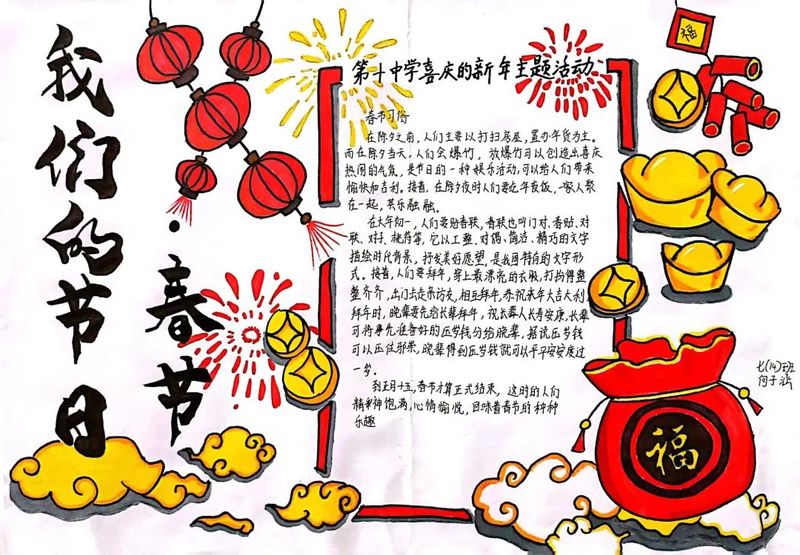 我们的节日
·春节
第十中学喜庆的新年主题活动
春节习俗
在除夕之前,人们主要以打扫房屋,置办年货为主。
而在除夕当天,人们会爆竹,放爆竹可以创造出喜庆
热闹的气氛,是节日的一种娱乐活动,可以给人们带来
愉快和吉利。接着,在除夕夜时人们要吃年夜饭,一家人聚
在一起,其乐融融。
在大年初一,人们要贴春联,春联也叫门对、春贴、对
联、对子、桃符等,它以工整、对偶、简洁、精巧的文字
描绘时代背景,抒发美好愿望,是我国特有的文字形
式。接着,人们要拜年,穿上最漂亮的衣服,打扮得整
整齐齐,出门去走亲访友,相互拜年,恭祝来年大吉大利
拜年时,晚辈要先给长辈拜年,祝长辈人长寿安康,长辈
可将事先准备好的压岁钱分给晚辈,据说压岁钱
可以压住邪祟,晚辈得到压岁钱就可以平平安安度过
一岁。
到正月十五,春节才算正式结束,这时的人们
精神饱满,心情愉悦,回味着春节的种种
乐趣
福
福
七(14)班
何子